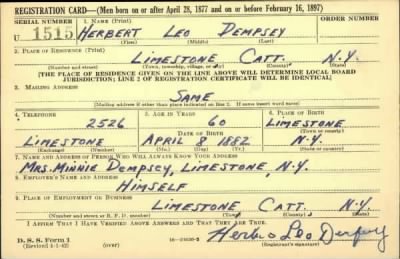 REGISTRATION CARD—(Men born on or after April 28, 1877 and on or before February 16, 1897)
SERIAL NUMBER 1. NAME (Print)
U 1515 HERBERT LEO DEMPSEY
(First) (Middle) (Last)
2. PLACE OF RESIDENCE (Print)
LIMESTONE CATT. N.Y.
(Number and street) (Town, township, village, or city) (County) (State)
[THE PLACE OF RESIDENCE GIVEN ON THE LINE ABOVE WILL DETERMINE LOCAL BOARD
JURISDICTION; LINE 2 OF REGISTRATION CERTIFICATE WILL BE IDENTICAL]
3. MAILING ADDRESS
SAME
[Mailing address if other than place indicated on line 2. If same insert word same]
4. TELEPHONE 5. AGE IN YEARS 6. PLACE OF BIRTH
2526 60 LIMESTONE
DATE OF BIRTH (Town or county)
LIMESTONE APRIL 8 1882 N.Y.
(Exchange) (Number) (Mo.) (Day) (Yr.) (State or country)
7. NAME AND ADDRESS OF PERSON WHO WILL ALWAYS KNOW YOUR ADDRESS
MRS. MINNIE DEMPSEY, LIMESTONE, N.Y.
8. EMPLOYER'S NAME AND ADDRESS
HIMSELF
9. PLACE OF EMPLOYMENT OR BUSINESS
LIMESTONE CATT. N.Y.
(Number and street or R. F. D. number) (Town) (County) (State)
I AFFIRM THAT I HAVE VERIFIED ABOVE ANSWERS AND THAT THEY ARE TRUE.
D. S. S. Form 1
(Revised 4-1-42) (over) Herbert Leo Dempsey
(Registrant's signature)